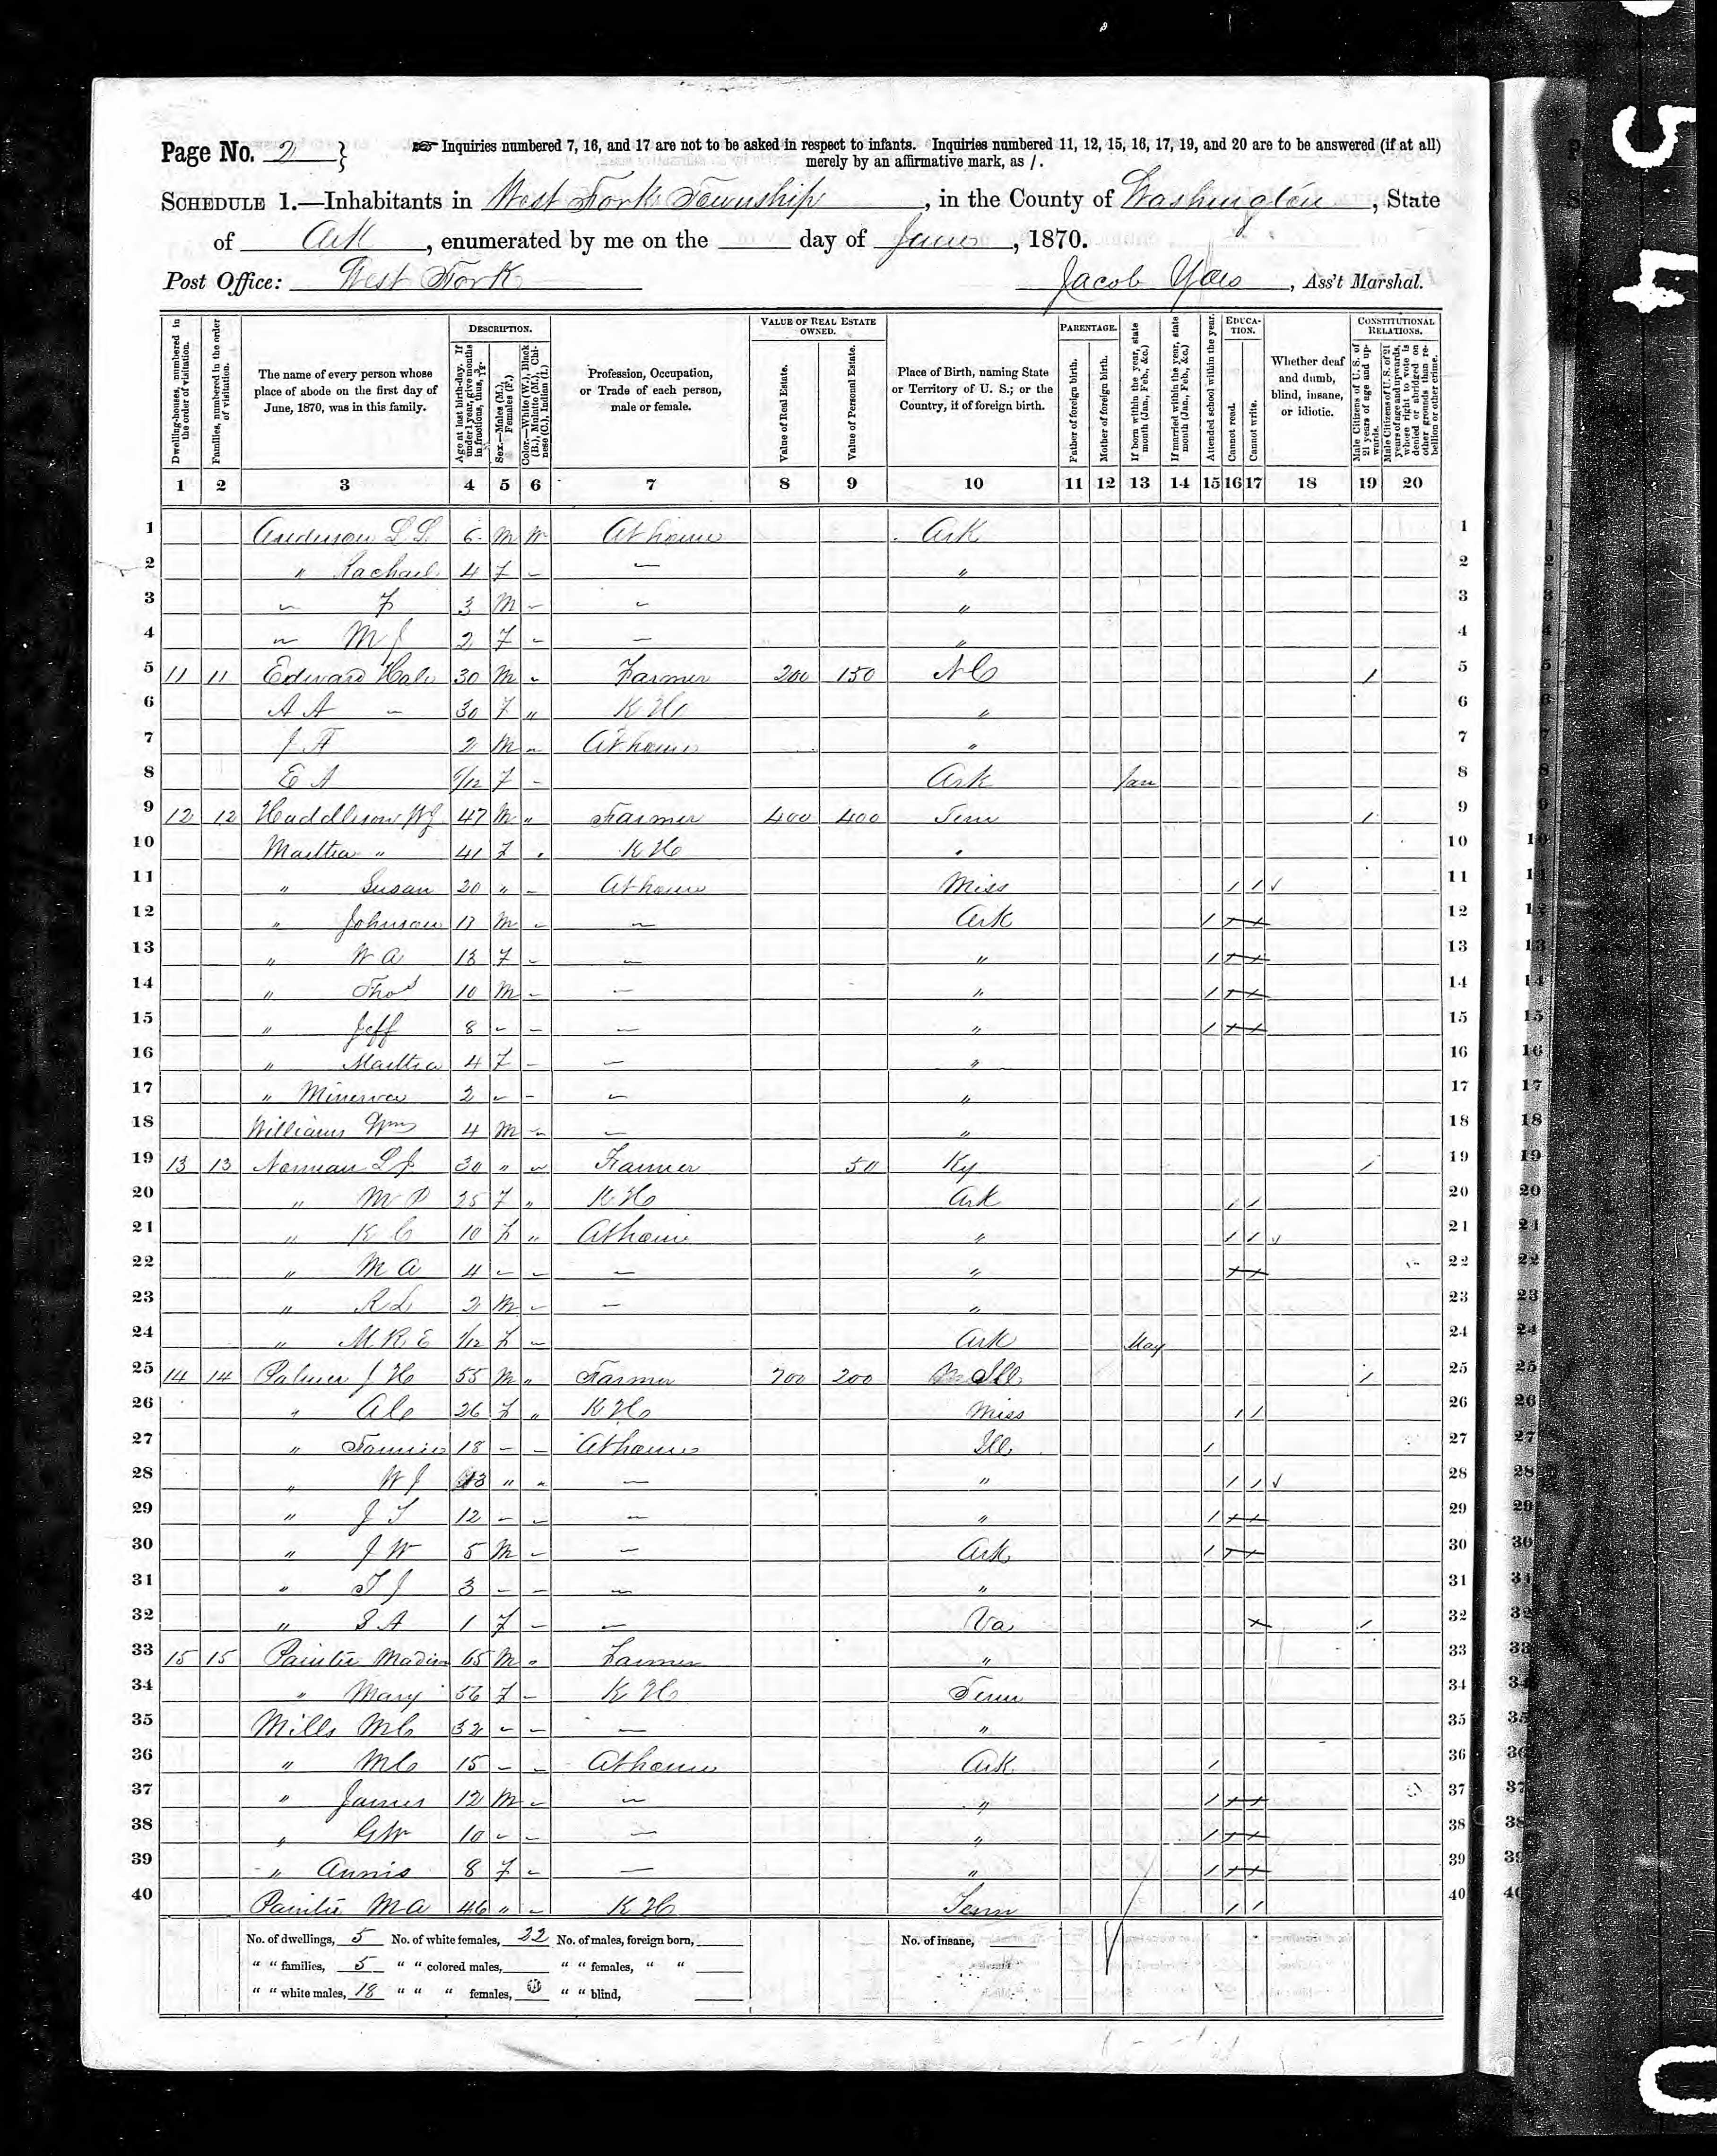 Page No. 2 }
☞ Inquiries numbered 7, 16, and 17 are not to be asked in respect to infants. Inquiries numbered 11, 12, 15, 16, 17, 19, and 20 are to be answered (if at all)
merely by an affirmative mark, as /.
SCHEDULE 1.—Inhabitants in West Fork Township, in the County of Washington, State
of Ark, enumerated by me on the day of June, 1870.
Post Office: West Fork Jacob Yoes, Ass't Marshal.
Dwelling-houses, numbered in the order of visitation.
Families, numbered in the order of visitation.
The name of every person whose place of abode on the first day of June, 1870, was in this family.
DESCRIPTION.
Age at last birth-day. If under 1 year, give months in fractions, thus, 3/12.
Sex.—Males (M.), Females (F.)
Color.—White (W.), Black (B.), Mulatto (M.), Chinese (C.), Indian (I.)
Profession, Occupation, or Trade of each person, male or female.
VALUE OF REAL ESTATE OWNED.
Value of Real Estate.
Value of Personal Estate.
Place of Birth, naming State or Territory of U. S.; or the Country, if of foreign birth.
PARENTAGE.
Father of foreign birth.
Mother of foreign birth.
If born within the year, state month (Jan., Feb., &c.)
If married within the year, state month (Jan., Feb., &c.)
Attended school within the year.
EDUCATION.
Cannot read.
Cannot write.
Whether deaf and dumb, blind, insane, or idiotic.
CONSTITUTIONAL RELATIONS.
Male Citizens of U. S. of 21 years of age and upwards.
Male Citizens of U. S. of 21 years of age and upwards, where right to vote is denied or abridged on other grounds than rebellion or other crime.
1 2 3 4 5 6 7 8 9 10 11 12 13 14 15 16 17 18 19 20
1 Anderson L L 6 M W At home Ark 1
2 " Rachael 4 F " 2
3 F 3 M " 3
4 M J 2 F " 4
5 11 11 Edward Hale 30 M Farmer 200 150 N C / 5
6 A A 30 F " K H " 6
7 J A 2 M At home " 7
8 E A 5/12 F Ark Jan 8
9 12 12 W J 47 M " Farmer 400 400 Tenn / 9
10 Martha " 41 F K H 10
11 " Susan 20 " At home Miss / / √ 11
12 " Johnson M Ark / 12
13 " W A 13 F " / 13
14 " Thos 10 M " / 14
15 " Jeff 8 " / 15
16 " Martha 4 F " 16
17 " Minerva 2 " 17
18 Williams Wm 4 M " 18
19 13 13 Norman L J 30 " Farmer 50 Ky / 19
20 " M 25 F " K H Ark / / 20
21 " K C 10 F " At home " / / √ 21
22 " M A 4 " 22
23 " R L 2 M " 23
24 " M R E 1/12 F Ark May 24
25 14 14 Palmer J H 55 M " Farmer 700 200 Ill / 25
26 " 26 F " K H Miss / / 26
27 " Fannie 18 At home Ill / 27
28 " W J 13 " " " / / √ 28
29 " J T 12 " / 29
30 " J W 5 M Ark / 30
31 " T J 3 " 31
32 " S A 1 F Va / 32
33 15 15 Painter Madison 65 M " Farmer " 33
34 " Mary 56 F K H Tenn 34
35 Mills M C 32 " 35
36 " M C 15 At home Ark / 36
37 " James 12 M " / 37
38 " G W 10 " / 38
39 " Annis 8 F " / 39
40 Painter M A 46 " K H Tenn / / 40
No. of dwellings, 5 No. of white females, 22 No. of males, foreign born, No. of insane,
" " families, 5 " " colored males, " " females, " "
" " white males, 18 " " " females, " " blind,